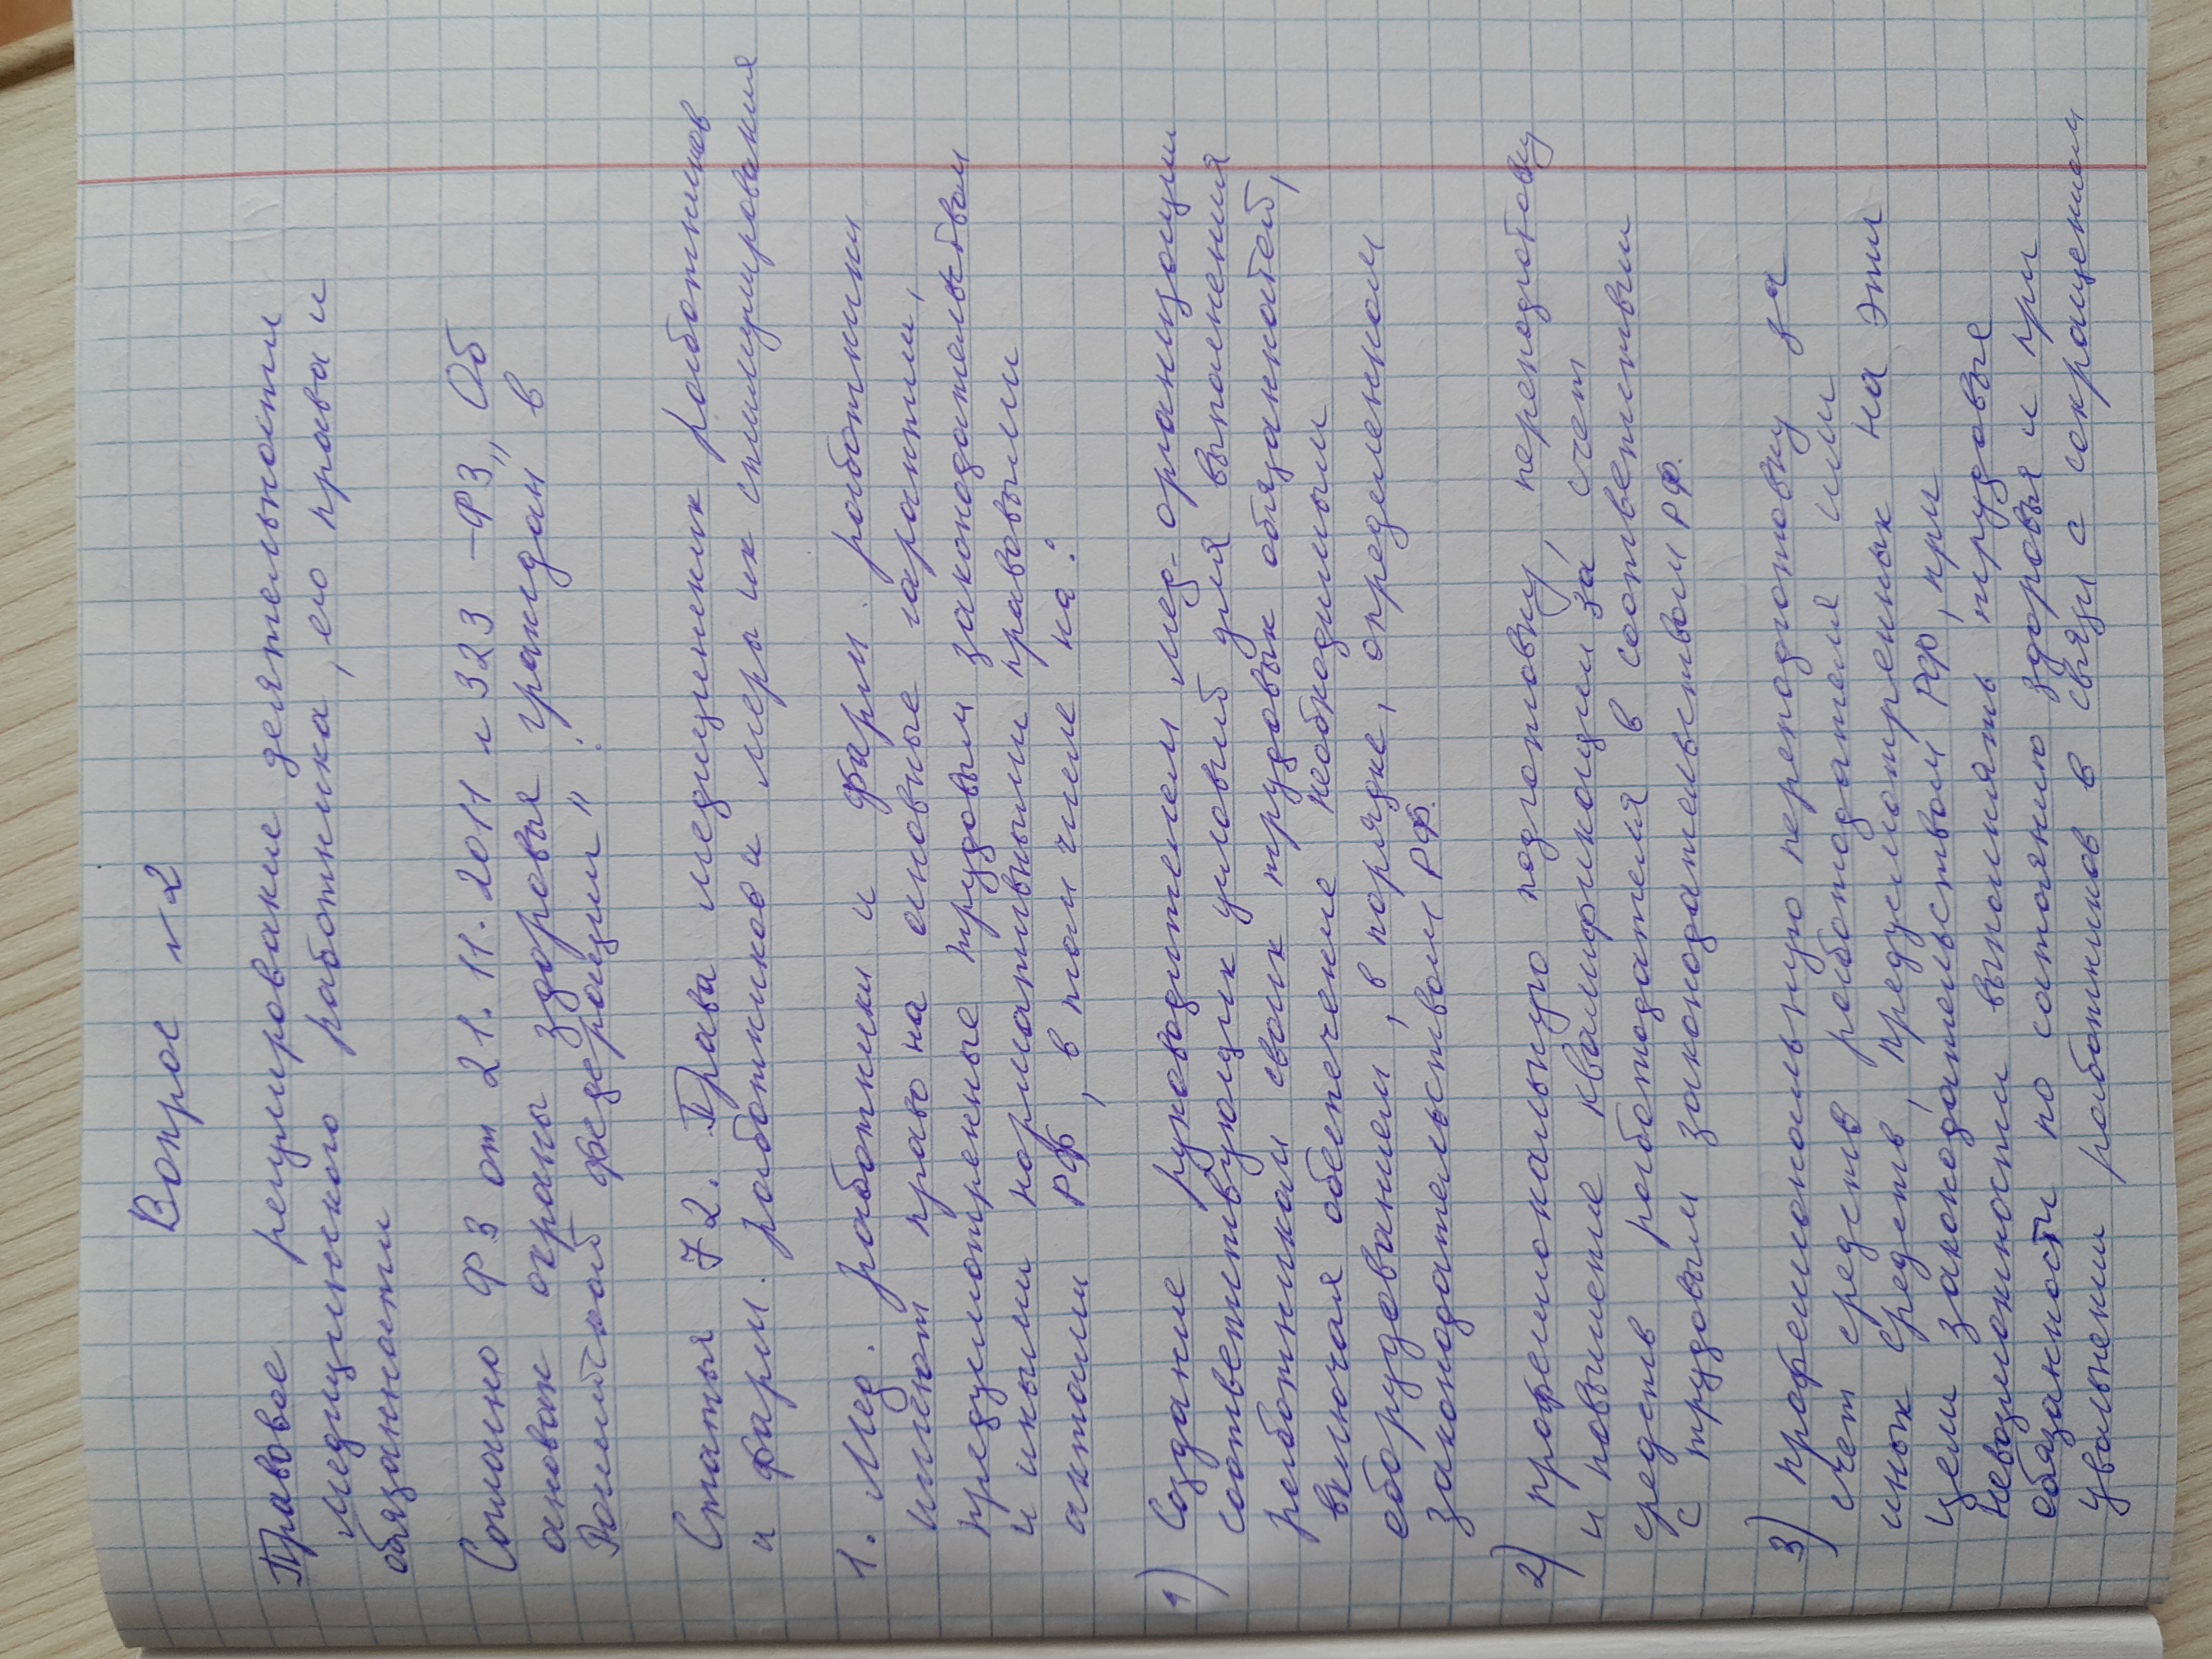 Вопрос №2
Правовое регулирование деятельности
медицинского работника, его права и
обязанности
Согласно ФЗ от 21.11.2011 N 323-ФЗ „Об
основах охраны здоровья граждан в
Российской федерации".
Статья 72. Права медицинских работников
и фарм. работников и меры их стимулирования
1. Мед. работники и фарм. работники
имеют право на основные гарантии,
предусмотренные трудовым законодательством
и иными нормативными правовыми
актами РФ, в том числе на:
1) Создание руководителем мед. организации
соответствующих условий для выполнения
работником своих трудовых обязанностей,
включая обеспечение необходимым
оборудованием, в порядке, определенном
законодательством РФ.
2) профессиональную подготовку, переподготовку
и повышение квалификации за счет
средств работодателя в соответствии
с трудовым законодательством РФ.
3) профессиональную переподготовку за
счет средств работодателя или
иных средств, предусмотренных на эти
цели законодательством РФ, при
невозможности выполнять трудовые
обязанности по состоянию здоровья и при
увольнении работников в связи с сокращением